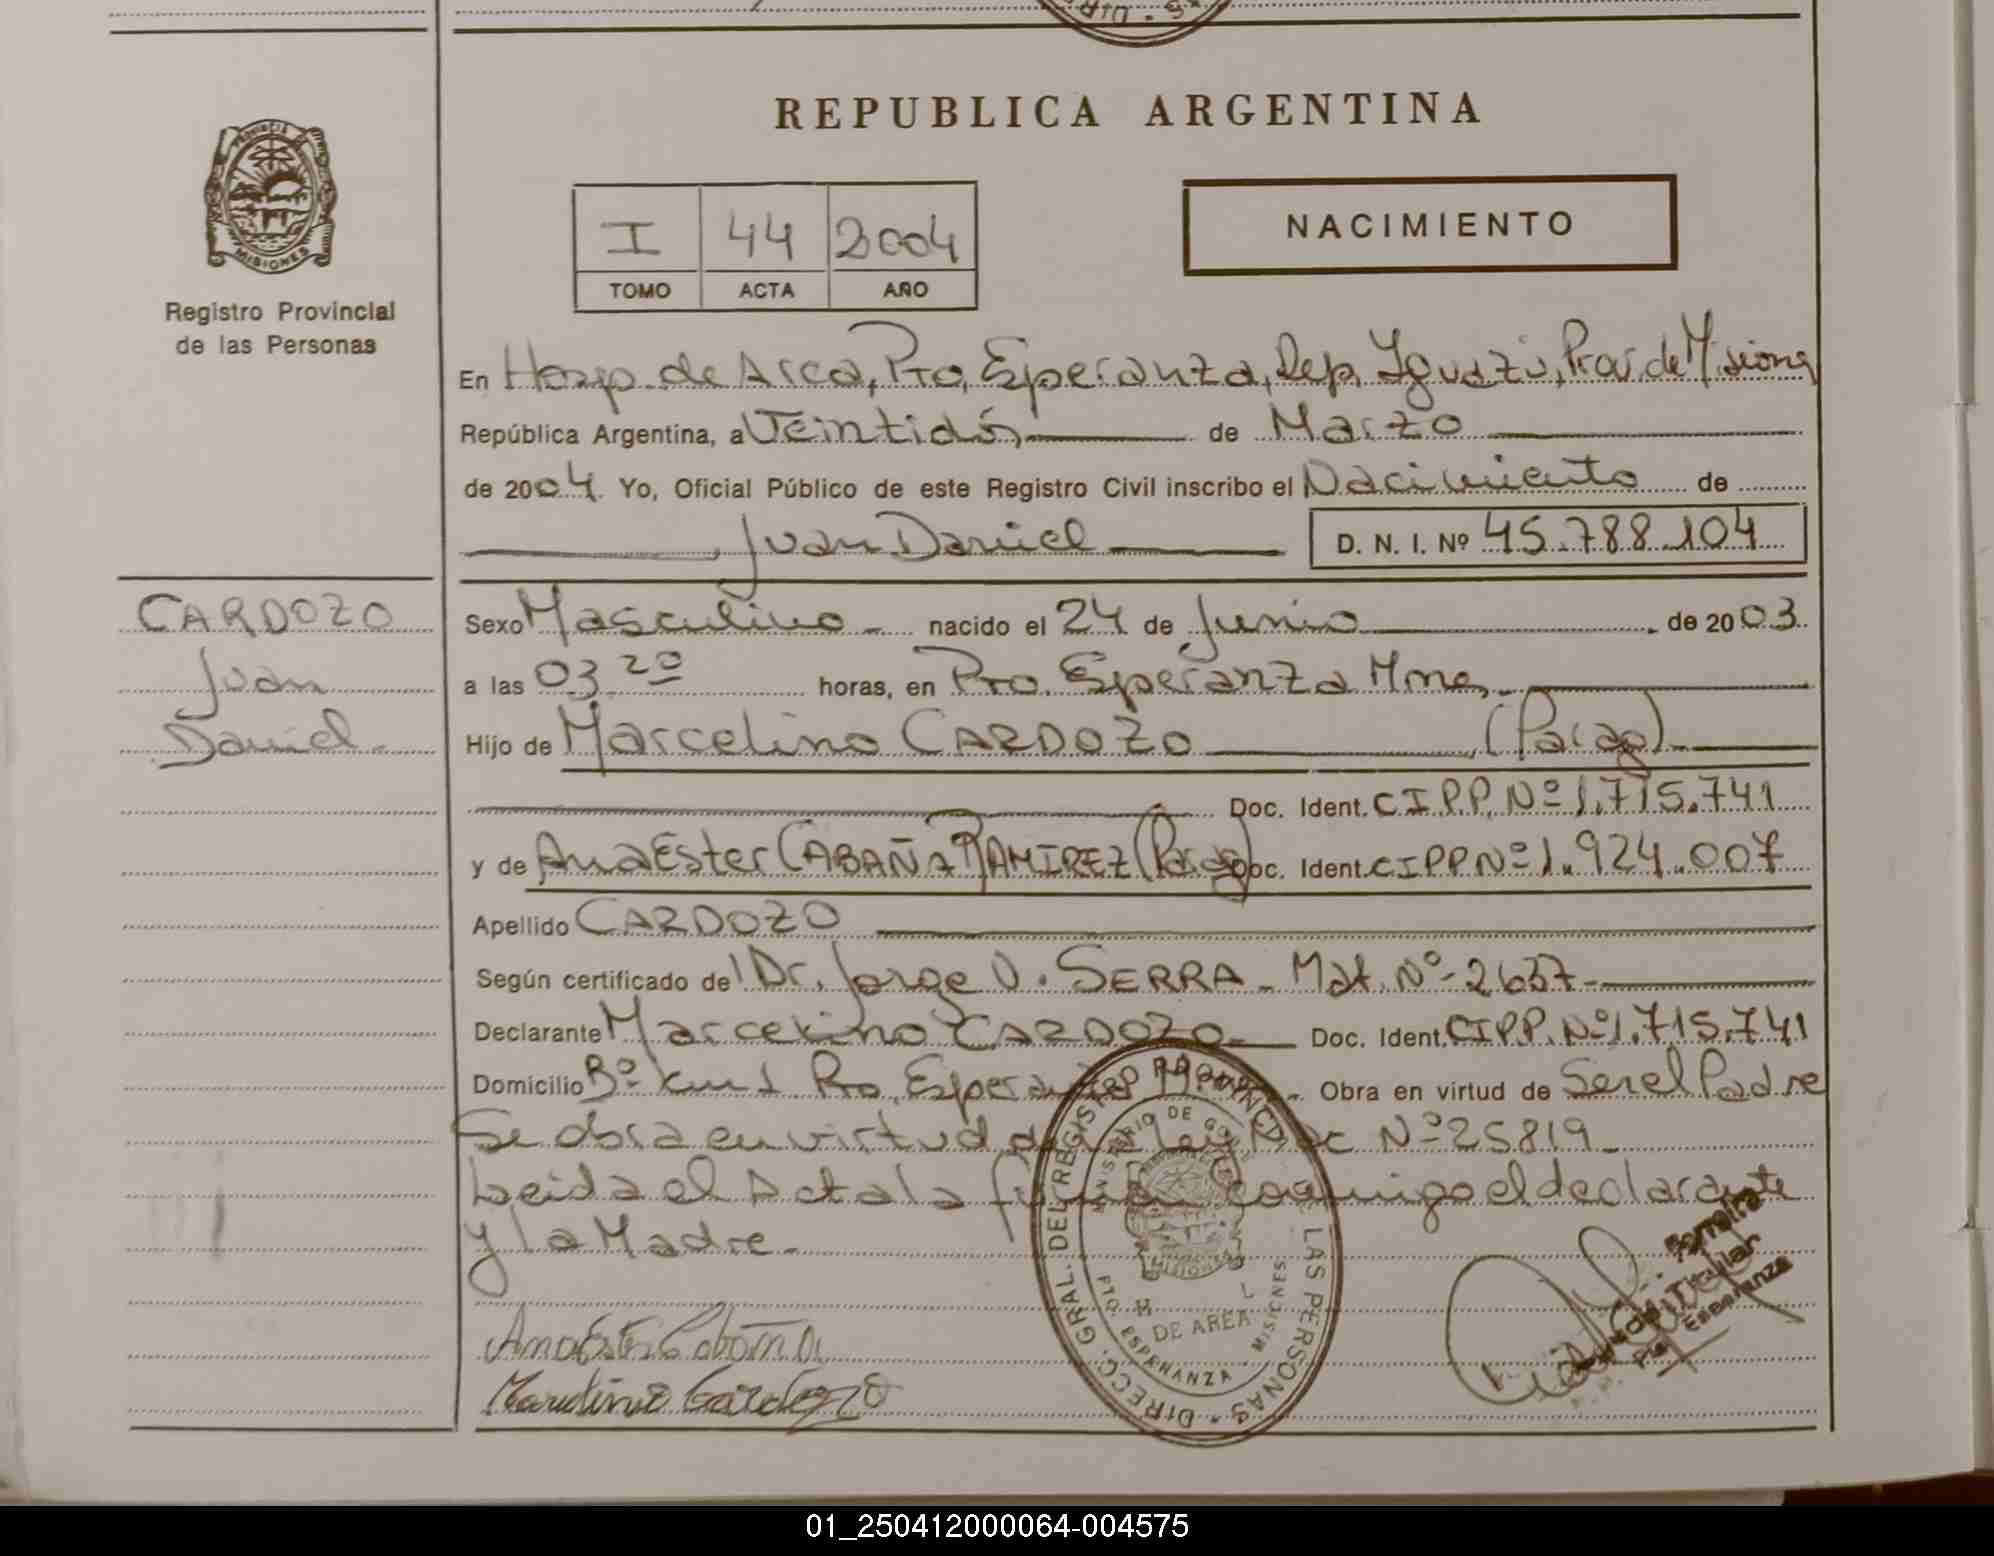 REPUBLICA ARGENTINA
PROVINCIA DE
MISIONES
Registro Provincial
de las Personas
I 44 2004
TOMO ACTA AÑO
NACIMIENTO
En Hosp. de Area, Pto. Esperanza, Dep. Iguazú, Prov. de Misiones
República Argentina, a Veintidós de Marzo
de 2004. Yo, Oficial Público de este Registro Civil inscribo el Nacimiento de
Juan Daniel D. N. I. Nº 45.788.104
CARDOZO
Juan
Daniel.-
Sexo Masculino nacido el 24 de Junio de 2003.
a las 03 20 horas, en Pto. Esperanza Mnes.
Hijo de Marcelino CARDOZO (Parag)
Doc. Ident. C.I.P.P. Nº 1.715.741
y de Ana Ester CABAÑA RAMIREZ (Parag) Doc. Ident. CIPP Nº 1.924.007
Apellido CARDOZO
Según certificado del Dr. Jorge V. SERRA - Mat. Nº 2637
Declarante Marcelino CARDOZO Doc. Ident. CIPP. Nº 1.715.741
Domicilio Bº Km 1 Pto. Esperanza Obra en virtud de Ser el Padre
Se obra en virtud de la Ley Nº 25819
Leida el Acta la firman conmigo el declarante
y la Madre.-
Ana Ester Cabaña
Marcelino Cardozo
DIRECC. GRAL. DEL REGISTRO PROVINCIAL DE LAS PERSONAS
MINISTERIO DE
MISIONES
DE AREA
PTO. ESPERANZA - MISIONES
Titular
Pto. ESPERANZA
01_250412000064-004575